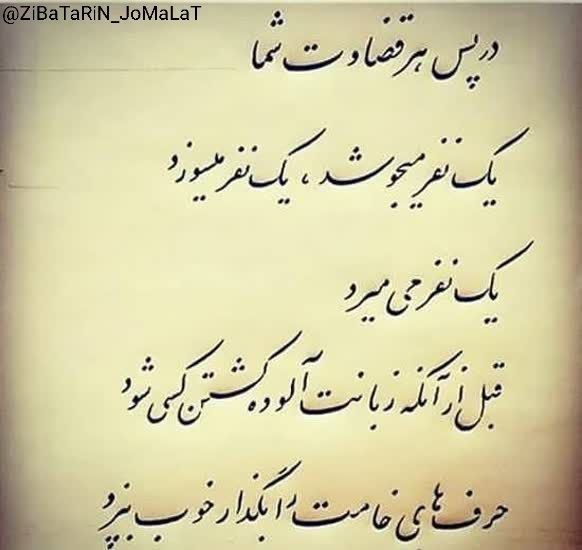 @ZiBaTaRiN_JoMaLaT
در پس هر قضاوت شما
یک نفر میجوشد ، یک نفر میسوزد
یک نفر می میرد
قبل از آنکه زبانت آلوده کشتن کسی شود
حرف های خامت را بگذار خوب بپزد